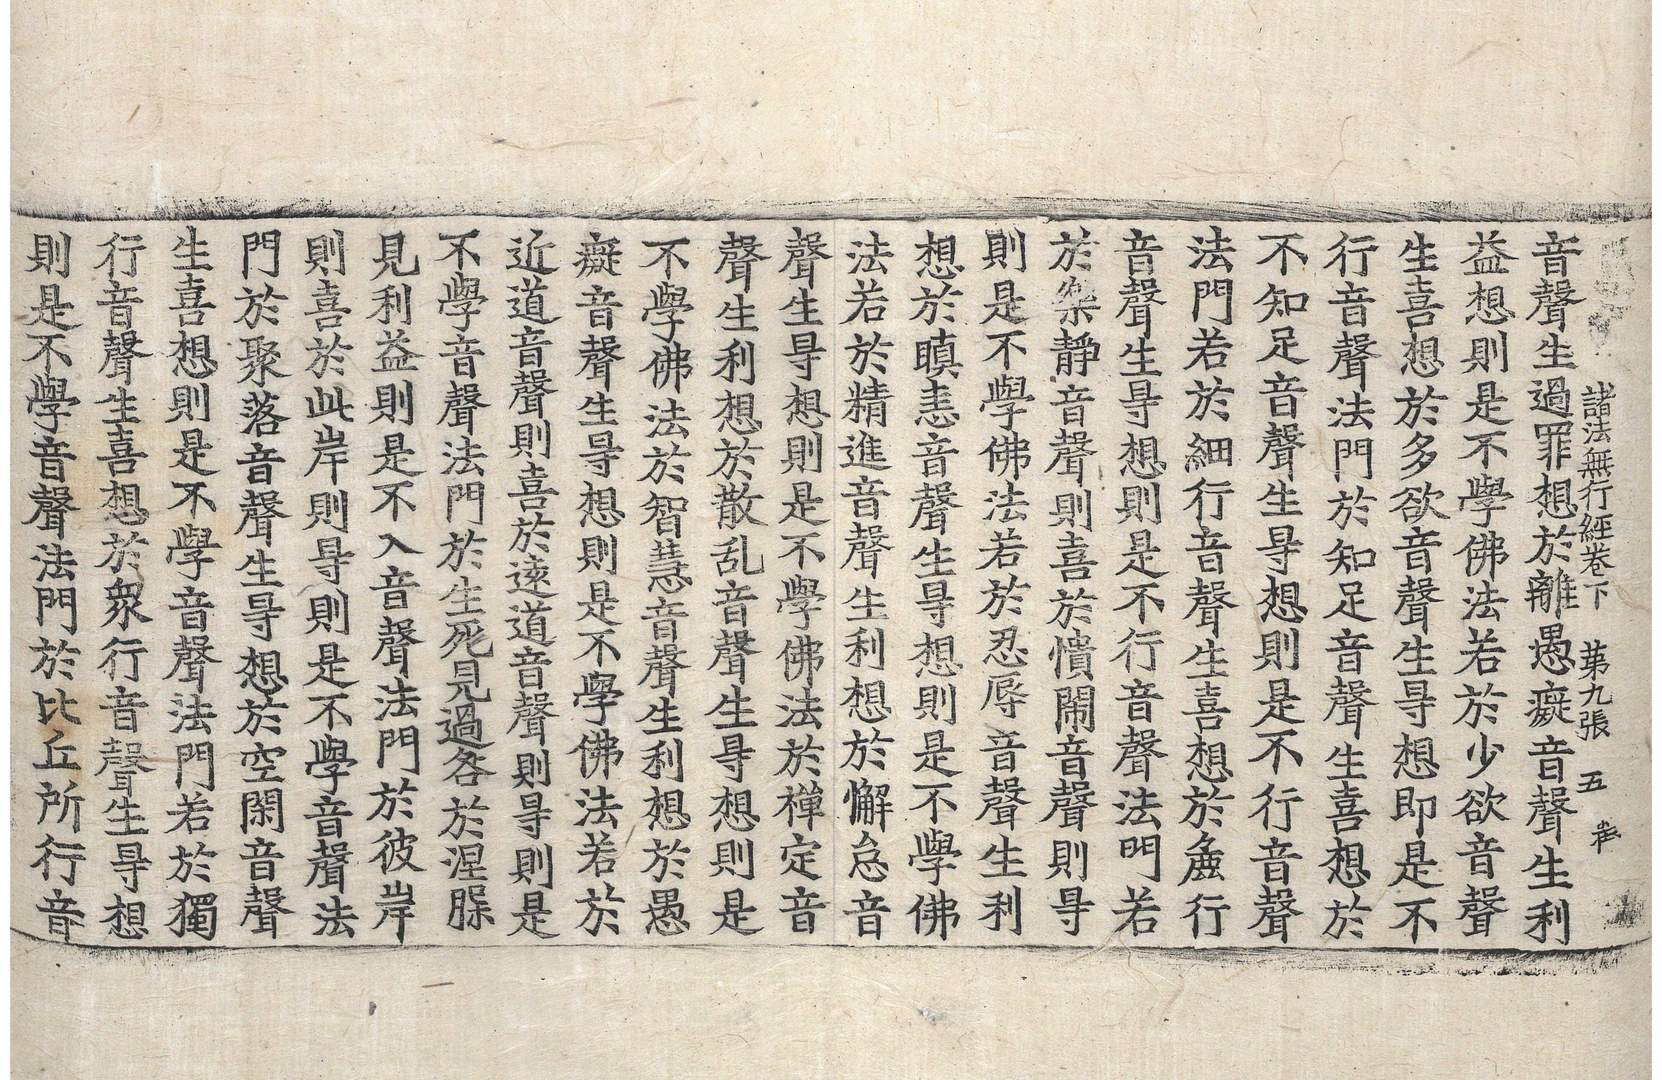 諸法無行經卷下 第九張 五
音聲生過罪想於離愚癡音聲生利
益想則是不學佛法若於少欲音聲
生喜想於多欲音聲生㝵想即是不
行音聲法門於知足音聲生喜想於
不知足音聲生㝵想則是不行音聲
法門若於細行音聲生喜想於麁行
音聲生㝵想則是不行音聲法門若
於樂靜音聲則喜於憒閙音聲則㝵
則是不學佛法若於忍辱音聲生利
想於瞋恚音聲生㝵想則是不學佛
法若於精進音聲生利想於懈怠音
聲生㝵想則是不學佛法於禅定音
聲生利想於散乱音聲生㝵想則是
不學佛法於智慧音聲生利想於愚
癡音聲生㝵想則是不學佛法若於
近道音聲則喜於遠道音聲則㝵則是
不學音聲法門於生死見過咎於涅槃
見利益則是不入音聲法門於彼岸
則喜於此岸則㝵則是不學音聲法
門於聚落音聲生㝵想於空閑音聲
生喜想則是不學音聲法門若於獨
行音聲生喜想於衆行音聲生㝵想
則是不學音聲法門於比丘所行音